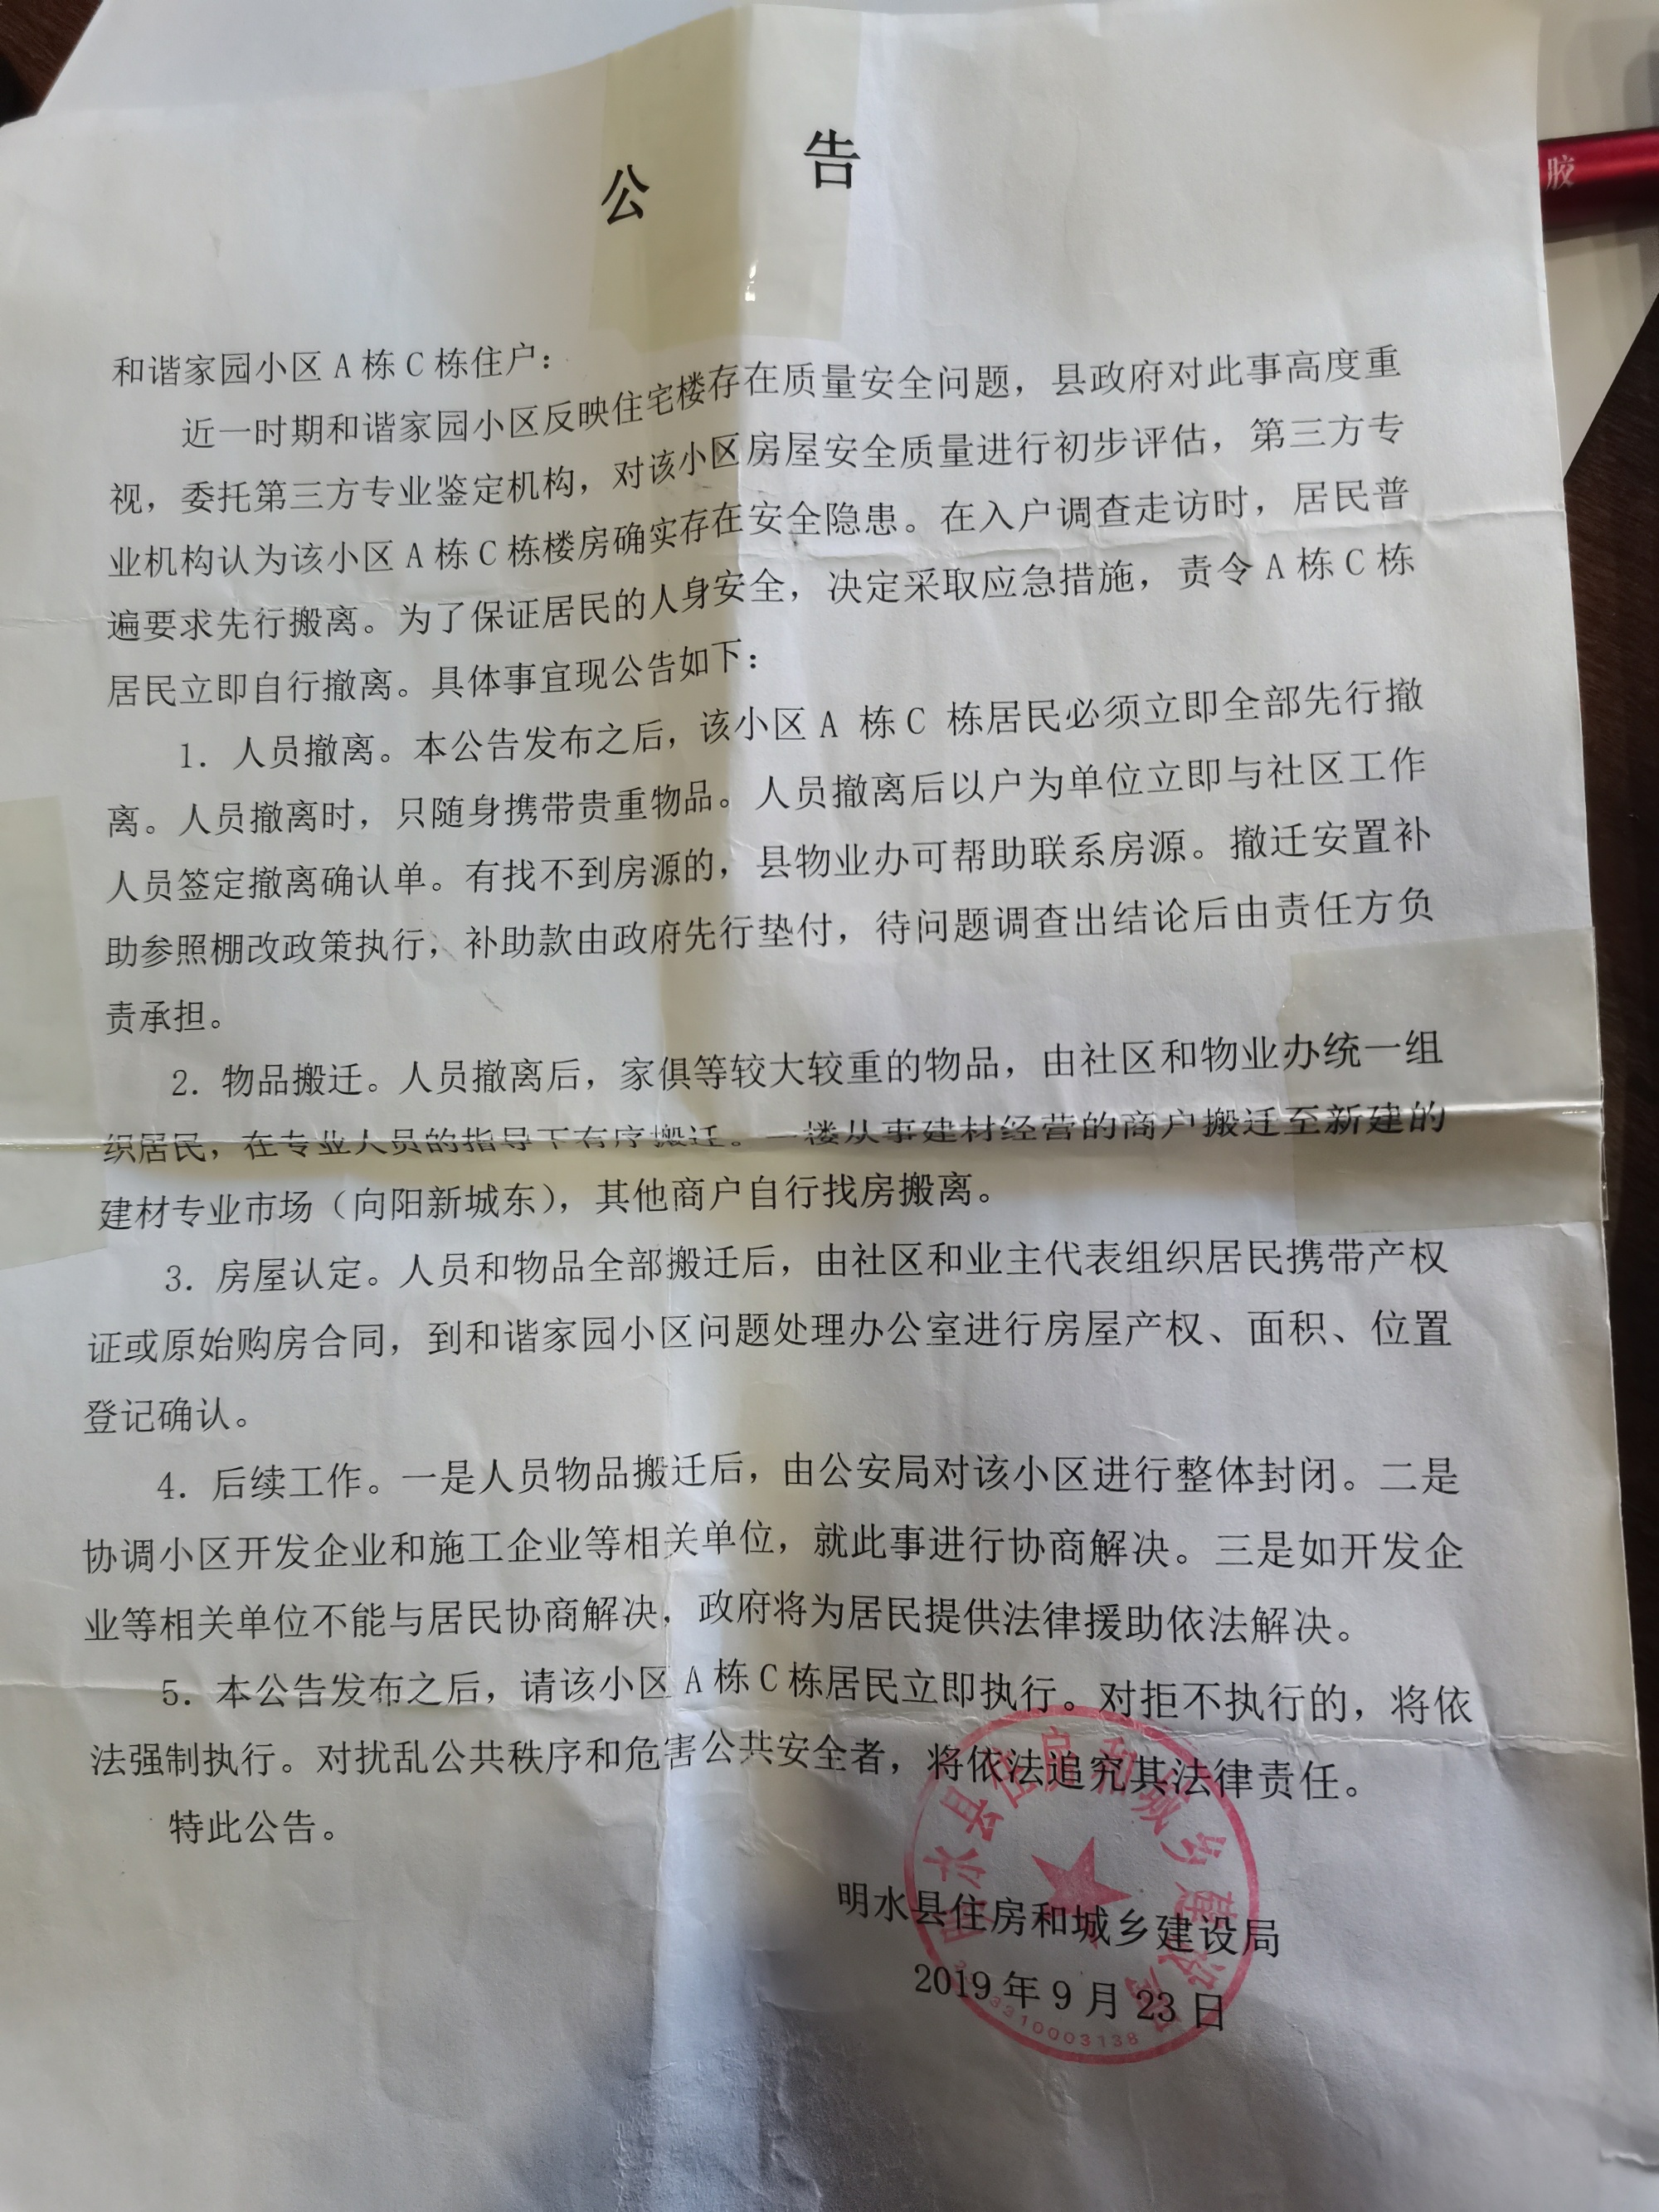 公 告
和谐家园小区 A 栋 C 栋住户：
近一时期和谐家园小区反映住宅楼存在质量安全问题，县政府对此事高度重
视，委托第三方专业鉴定机构，对该小区房屋安全质量进行初步评估，第三方专
业机构认为该小区 A 栋 C 栋楼房确实存在安全隐患。在入户调查走访时，居民普
遍要求先行搬离。为了保证居民的人身安全，决定采取应急措施，责令 A 栋 C 栋
居民立即自行撤离。具体事宜现公告如下：
1. 人员撤离。本公告发布之后，该小区 A 栋 C 栋居民必须立即全部先行撤
离。人员撤离时，只随身携带贵重物品。人员撤离后以户为单位立即与社区工作
人员签定撤离确认单。有找不到房源的，县物业办可帮助联系房源。撤迁安置补
助参照棚改政策执行，补助款由政府先行垫付，待问题调查出结论后由责任方负
责承担。
2. 物品搬迁。人员撤离后，家俱等较大较重的物品，由社区和物业办统一组
织居民，在专业人员的指导下有序搬迁。一楼从事建材经营的商户搬迁至新建的
建材专业市场（向阳新城东），其他商户自行找房搬离。
3. 房屋认定。人员和物品全部搬迁后，由社区和业主代表组织居民携带产权
证或原始购房合同，到和谐家园小区问题处理办公室进行房屋产权、面积、位置
登记确认。
4. 后续工作。一是人员物品搬迁后，由公安局对该小区进行整体封闭。二是
协调小区开发企业和施工企业等相关单位，就此事进行协商解决。三是如开发企
业等相关单位不能与居民协商解决，政府将为居民提供法律援助依法解决。
5. 本公告发布之后，请该小区 A 栋 C 栋居民立即执行。对拒不执行的，将依
法强制执行。对扰乱公共秩序和危害公共安全者，将依法追究其法律责任。
特此公告。
明水县住房和城乡建设局
2019 年 9 月 23 日
明水县住房和城乡建设局
3310003138
胶